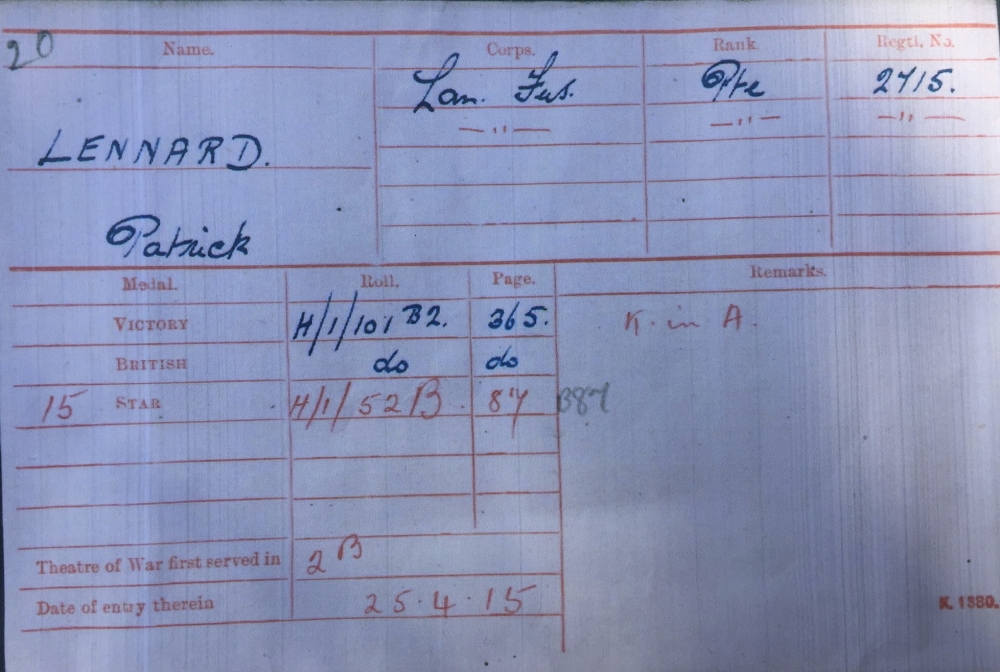 20
Name. Corps. Rank. Regtl. No.
Lan. Fus. Pte 2715.
—"— —"— —"—
LENNARD.
Patrick
Medal. Roll. Page. Remarks.
VICTORY H/1/101 B2. 365. K. in A.
BRITISH do do
15 STAR H/1/52B. 87 B87
Theatre of War first served in 2B
Date of entry therein 25.4.15
K. 1380.